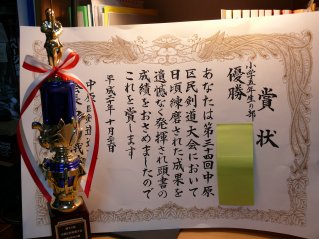 賞状
小学五年生の部
優勝
あなたは第三十四回中原
区民剣道大会において
日頃練磨された成果を
遺憾なく発揮され頭書の
成績をおさめましたので
これを賞します
平成二十年
中原区剣道